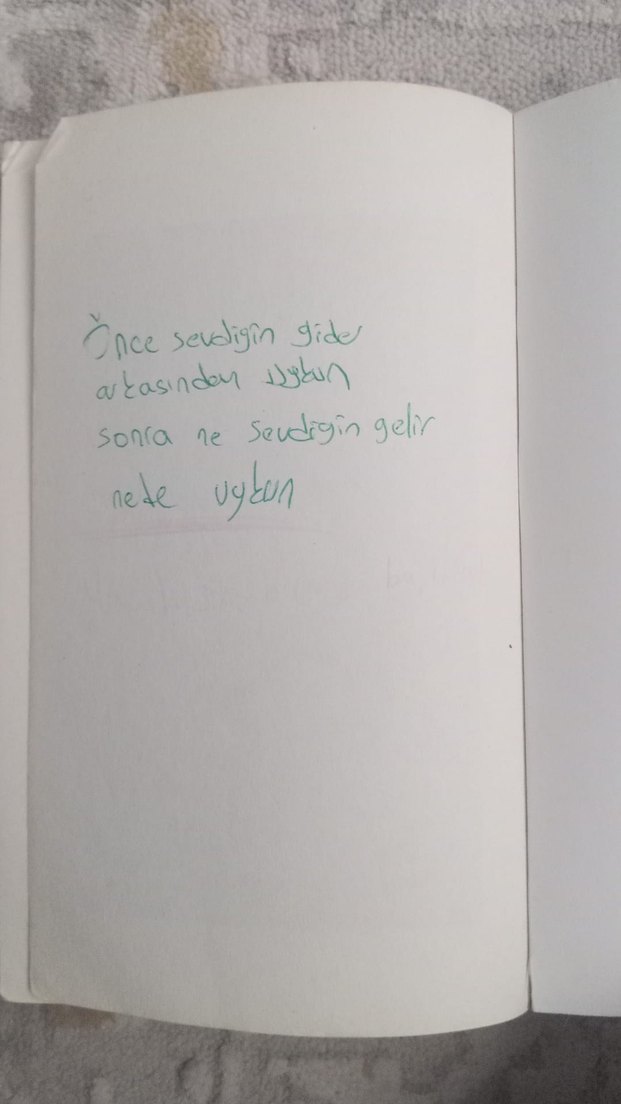 Önce sevdiğin gider
arkasından uykun
sonra ne sevdiğin gelir
nede uykun